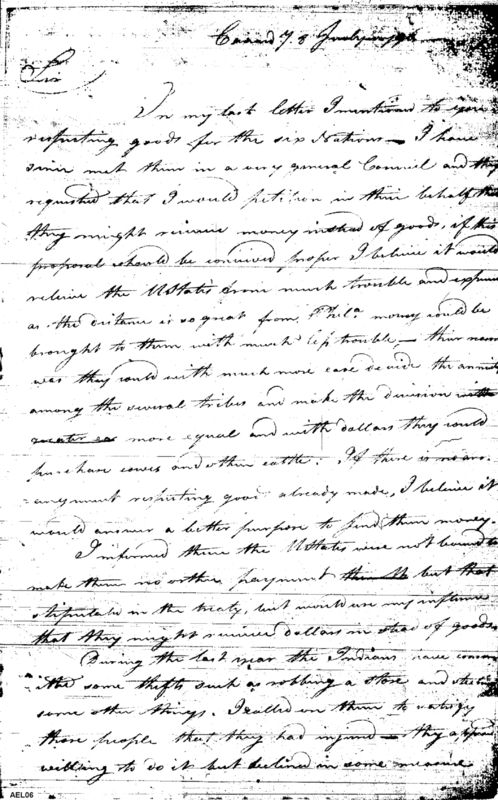 Sir
In my last letter I mentioned to you
respecting goods for the six Nations — I have
since met them in a very general Council and they
requested that I would petition in their behalf that
they might receive money instead of goods, if this
proposal should be conceived proper I believe it would
releive the UStates from much trouble and expence
as the distance is so great from Phila money could be
brought to them with much less trouble — their reason
was they could with much more ease devide the annuity
among the several tribes and make the division with
greater ea more equal and with dollars they could
purchase cows and other cattle. If there is no arr-
angement respecting goods already made, I believe it
would answer a better purpose to send them money.
I informed them the UStates were not bound to
make them no other payment but that
stipulated in the treaty, but would use my influence
that they might receive dollars in stead of goods
During the last year the Indians have comm
itted some thefts such as robbing a store and
some other things. I called on them to satisfy
those people that they had injured — they appeared
willing to do it but declined in some measure
AEL06